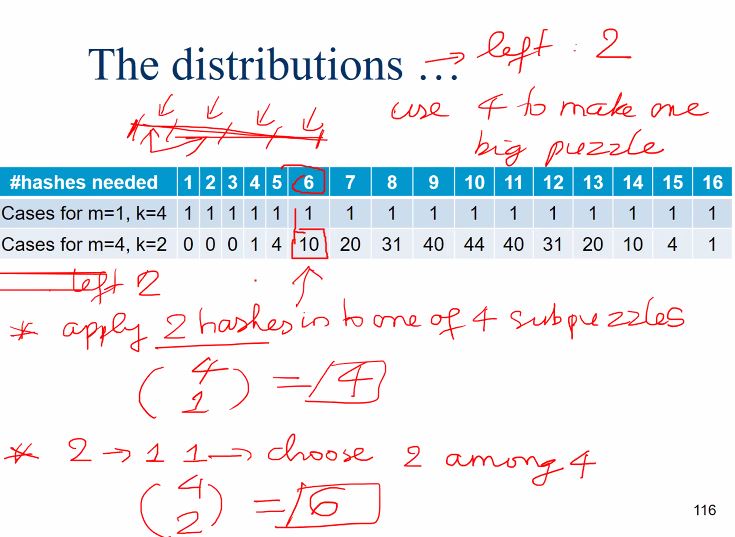 The distributions … → left : 2
use 4 to make one
big puzzle
#hashes needed 1 2 3 4 5 6 7 8 9 10 11 12 13 14 15 16
Cases for m=1, k=4 1 1 1 1 1 1 1 1 1 1 1 1 1 1 1 1
Cases for m=4, k=2 0 0 0 1 4 10 20 31 40 44 40 31 20 10 4 1
left 2
* apply 2 hashes in to one of 4 subpuzzles
(4 1) = 4
* 2 → 1 1 → choose 2 among 4
(4 2) = 6
116